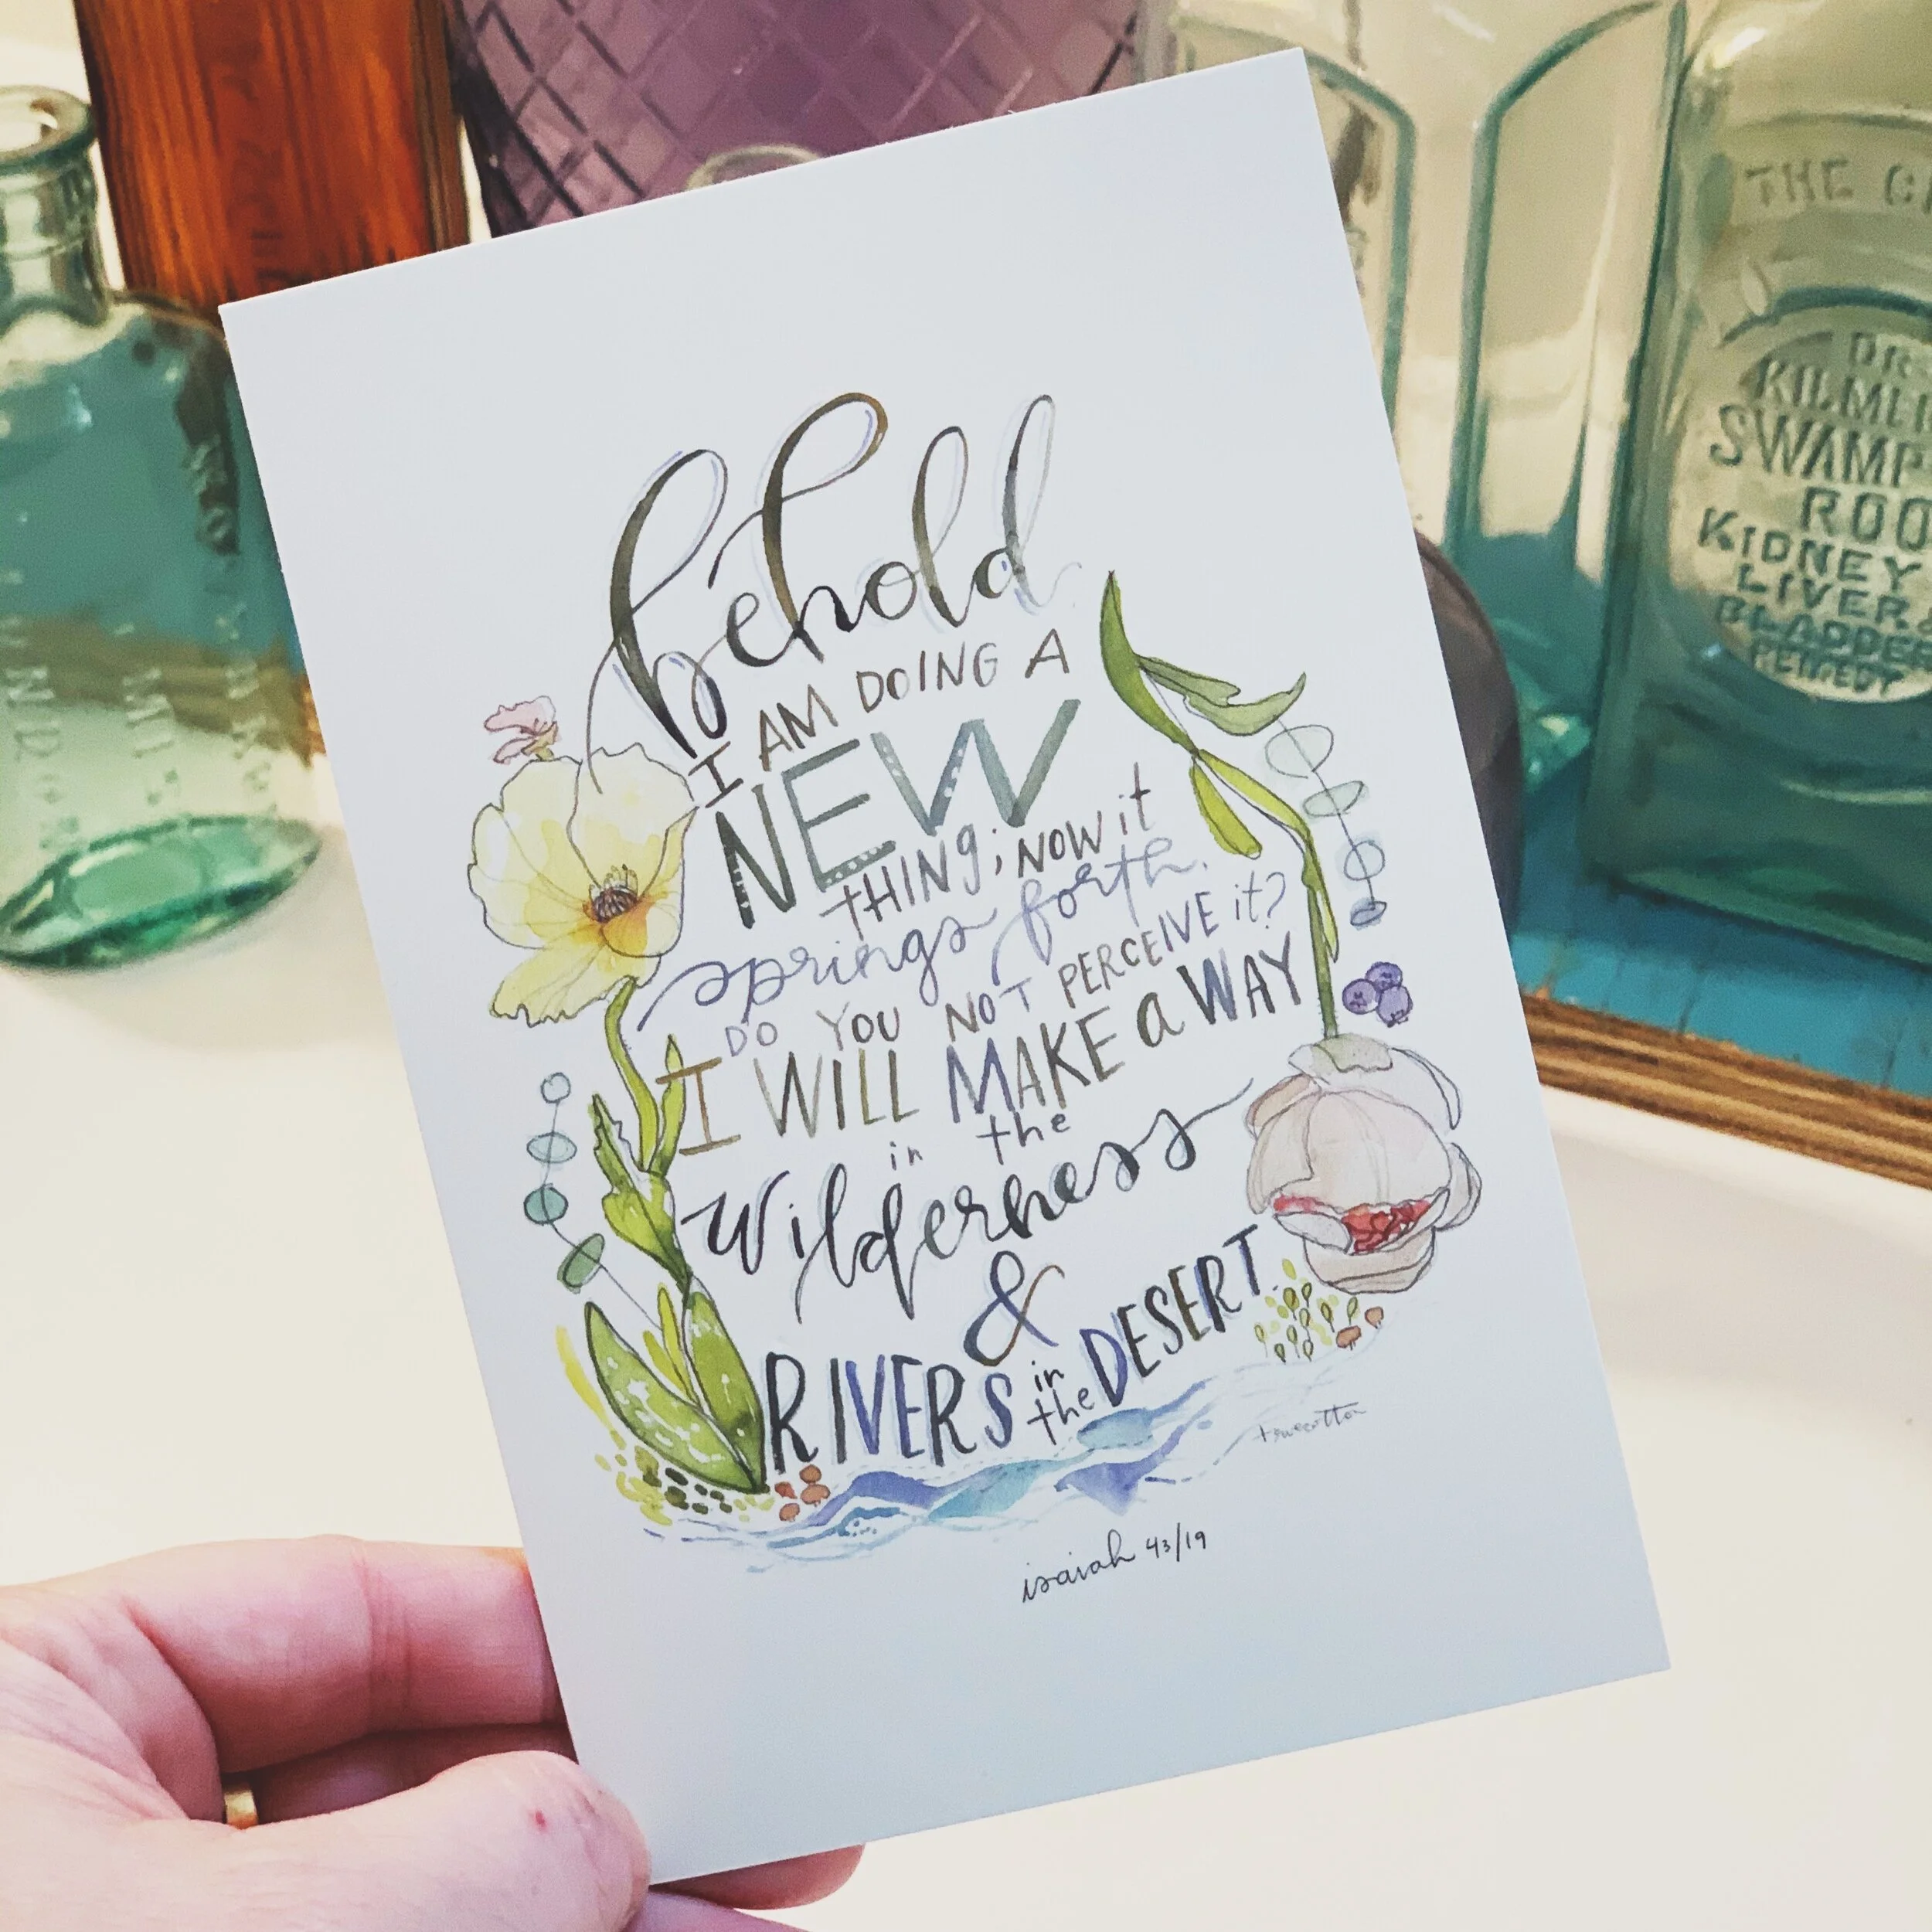 behold
I AM DOING A
NEW
tHINg; NOW it
springs forth.
DO YOU NOT PERCEIVE it?
I WILL MAKE a WAY
in the
wilderness
&
RIVERS in the DESERT.
isaiah 43/19
THE
DR
SWAMP
KIDNEY
LIVER &
BLADDER
REMEDY